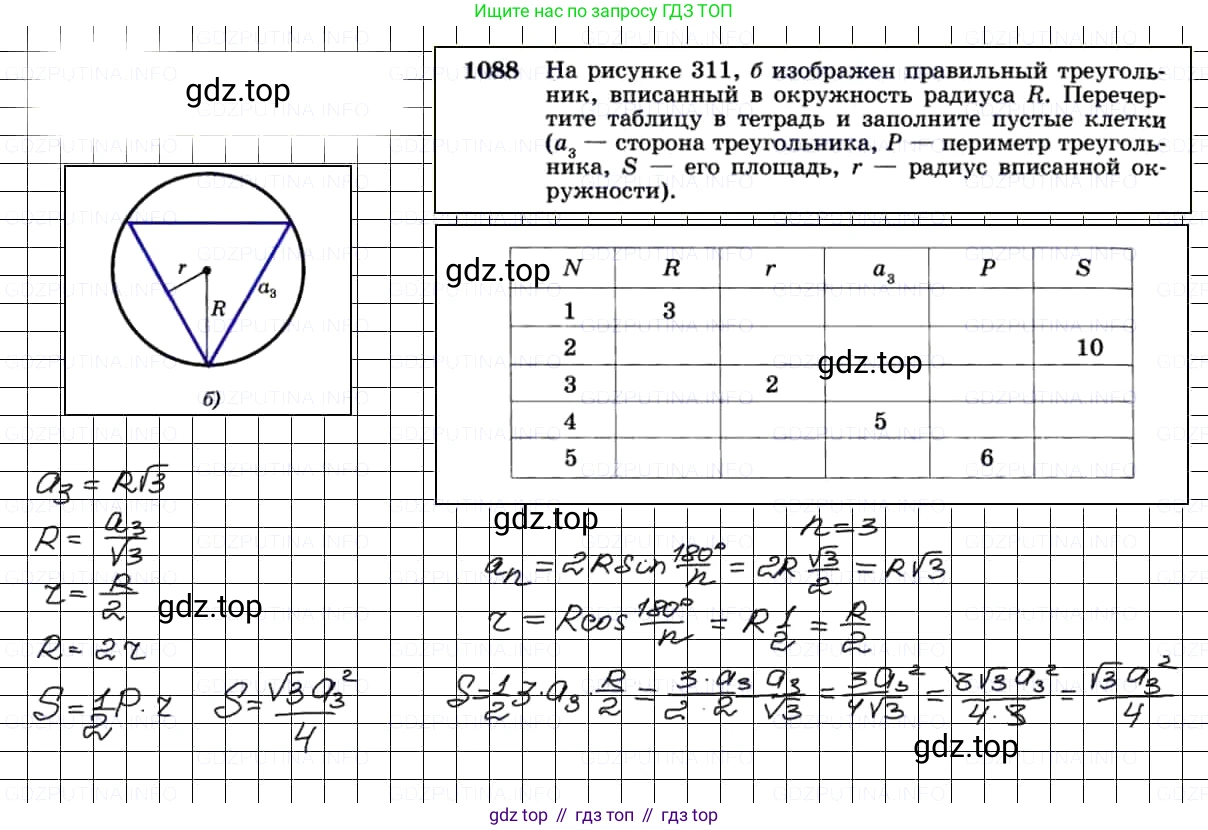 Ищите нас по запросу ГДЗ ТОП
1088 На рисунке 311, б изображен правильный треуголь-
ник, вписанный в окружность радиуса R. Перечер-
тите таблицу в тетрадь и заполните пустые клетки
(a₃ — сторона треугольника, P — периметр треуголь-
ника, S — его площадь, r — радиус вписанной ок-
ружности).
gdz.top
r
a₃
R
б)
gdz.top
N R r a₃ P S
1 3
2 10
gdz.top
3 2
4 5
5 6
a₃ = R√3
R = a₃/√3
r = R/2
gdz.top
R = 2r
S = 1/2 P · r S = √3 a₃²/4
gdz.top
n = 3
aₙ = 2R sin 180°/n = 2R √3/2 = R√3
r = R cos 180°/n = R 1/2 = R/2
S = 1/2 3 · a₃ · R/2 = 3 · a₃/2 · 2 a₃/√3 = 3a₃²/4√3 = 3√3 a₃²/4 · 3 = √3 a₃²/4
gdz.top
gdz top // гдз топ // gdz top
GDZPUTINA.INFO